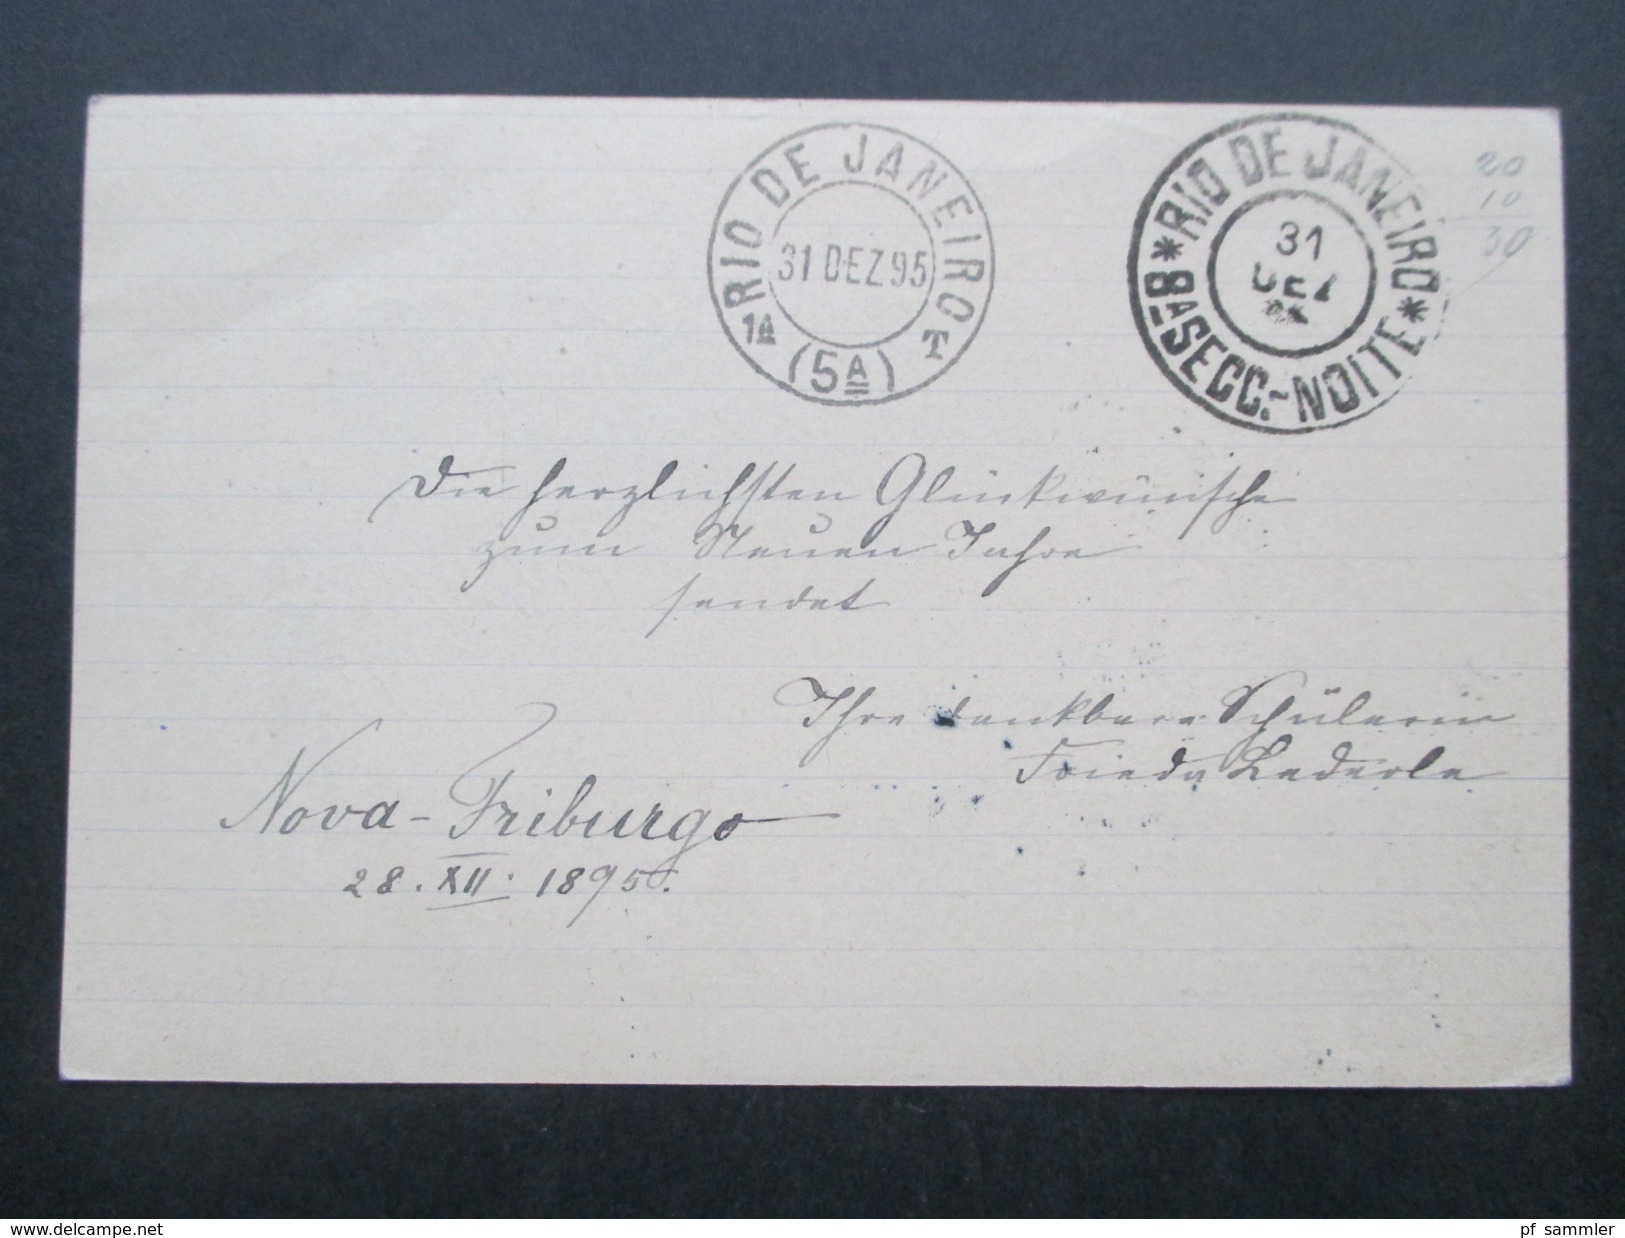 RIO DE JANEIRO
31 DEZ 95
1A (5A) T
RIO DE JANEIRO
31
DEZ
* 8A SECC.-NOITE *
20
10
30
Die herzlichsten Glückwünsche
zum Neuen Jahre
sendet
Ihre dankbare Schülerin
Frieda Lederle
Nova-Friburgo
28. XII. 1895.
www.delcampe.net
pf_sammler